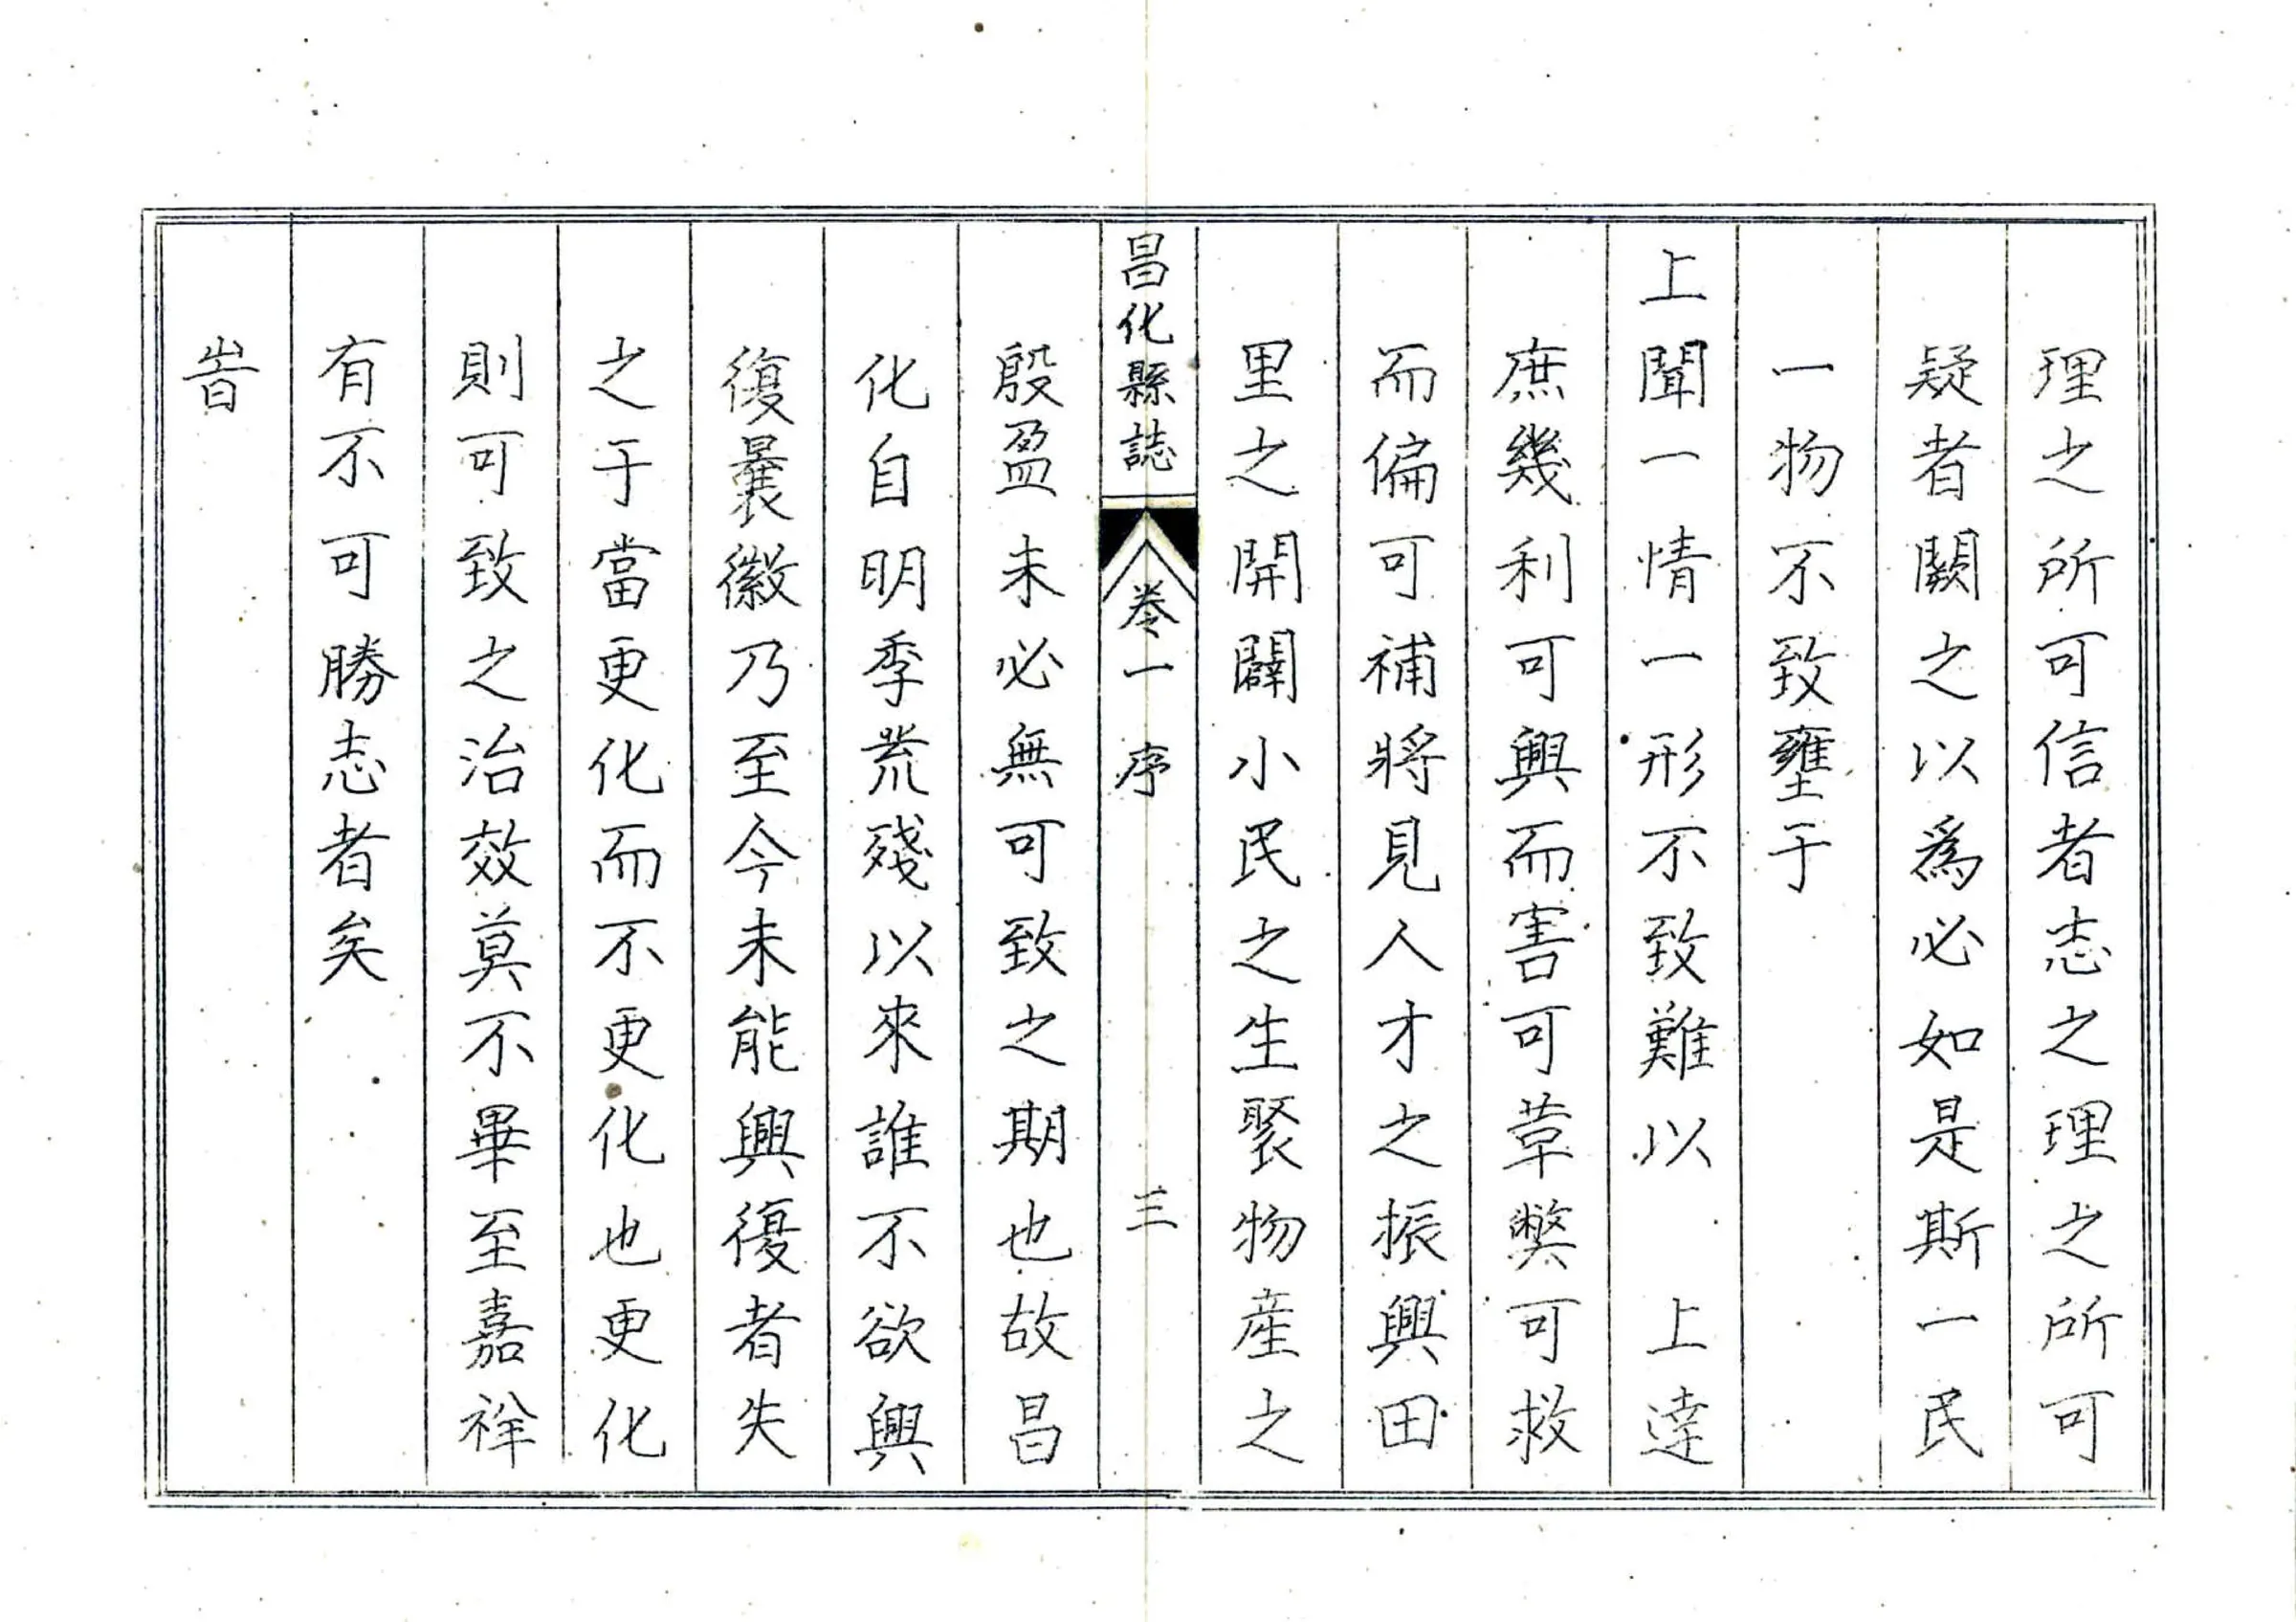 理之所可信者志之理之所可
疑者闕之以爲必如是斯一民
一物不致壅于
上聞一情一形不致難以　上達
庶幾利可興而害可革獘可救
而偏可補將見人才之振興田
里之開闢小民之生聚物産之
昌化縣誌　卷一　序　三
殷盈未必無可致之期也故昌
化自明季荒殘以來誰不欲興
復曩徽乃至今未能興復者失
之于當更化而不更化也更化
則可致之治效莫不畢至嘉祥
有不可勝志者矣
旹